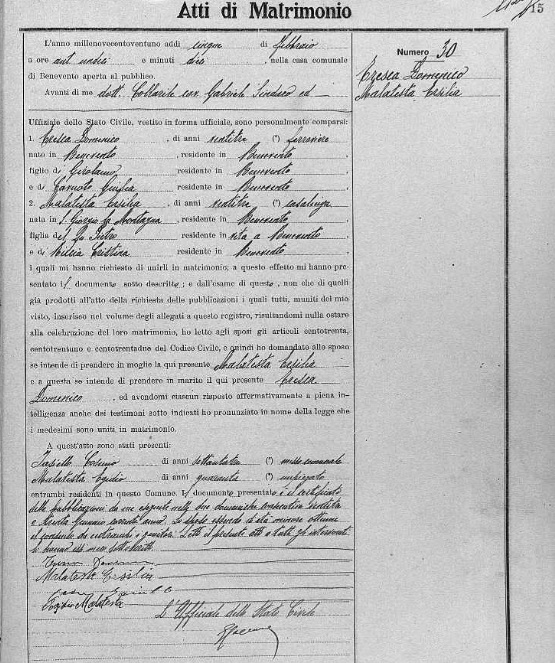 Atti di Matrimonio
15
L'anno millenovecentoventuno addì cinque di Febbraio
a ore ant. undici e minuti dieci, nella casa comunale
di Benevento aperta al pubblico.
Avanti di me dott. Gabriele Sindaco ed
Uffiziale dello Stato Civile, vestito in forma ufficiale, sono personalmente comparsi:
1. Cresca Domenico, di anni (*) ferroviere
nato in Benevento, residente in Benevento
figlio di Girolamo, residente in Benevento
e di Giulia residente in Benevento
2. Malatesta Ersilia, di anni (*) casalinga
nata in S. Giorgio la Montagna, residente in Benevento
figlia di residente in vita a Benevento
e di Cristina residente in Benevento
I quali mi hanno richiesto di unirli in matrimonio; a questo effetto mi hanno pre-
sentato i documento sotto descritto; e dall'esame di questo, non che di quelli
già prodotti all'atto della richiesta delle pubblicazioni i quali tutti, muniti del mio
visto, inserisco nel volume degli allegati a questo registro, risultandomi nulla ostare
alla celebrazione del loro matrimonio, ho letto agli sposi gli articoli centotrenta,
centotrentuno e centotrentadue del Codice Civile, e quindi ho domandato allo sposo
se intende di prendere in moglie la qui presente Malatesta Ersilia
e a questa se intende di prendere in marito il qui presente Cresca
Domenico, ed avendomi ciascun risposto affermativamente a piena in-
telligenza anche dei testimoni sotto indicati ho pronunziato in nome della legge che
i medesimi sono uniti in matrimonio.
A quest'atto sono stati presenti:
Cosimo di anni (*) messo comunale
Malatesta Egidio di anni quaranta (*) impiegato
entrambi residenti in questo Comune. Il documento presentato è il certificato
delle pubblicazioni da me eseguite nelle due domeniche consecutive
Letto il presente atto a tutti gl'intervenuti
lo hanno
Malatesta Ersilia
Egidio Malatesta
L'Ufficiale dello Stato Civile
Numero 30
Cresca Domenico
Malatesta Ersilia